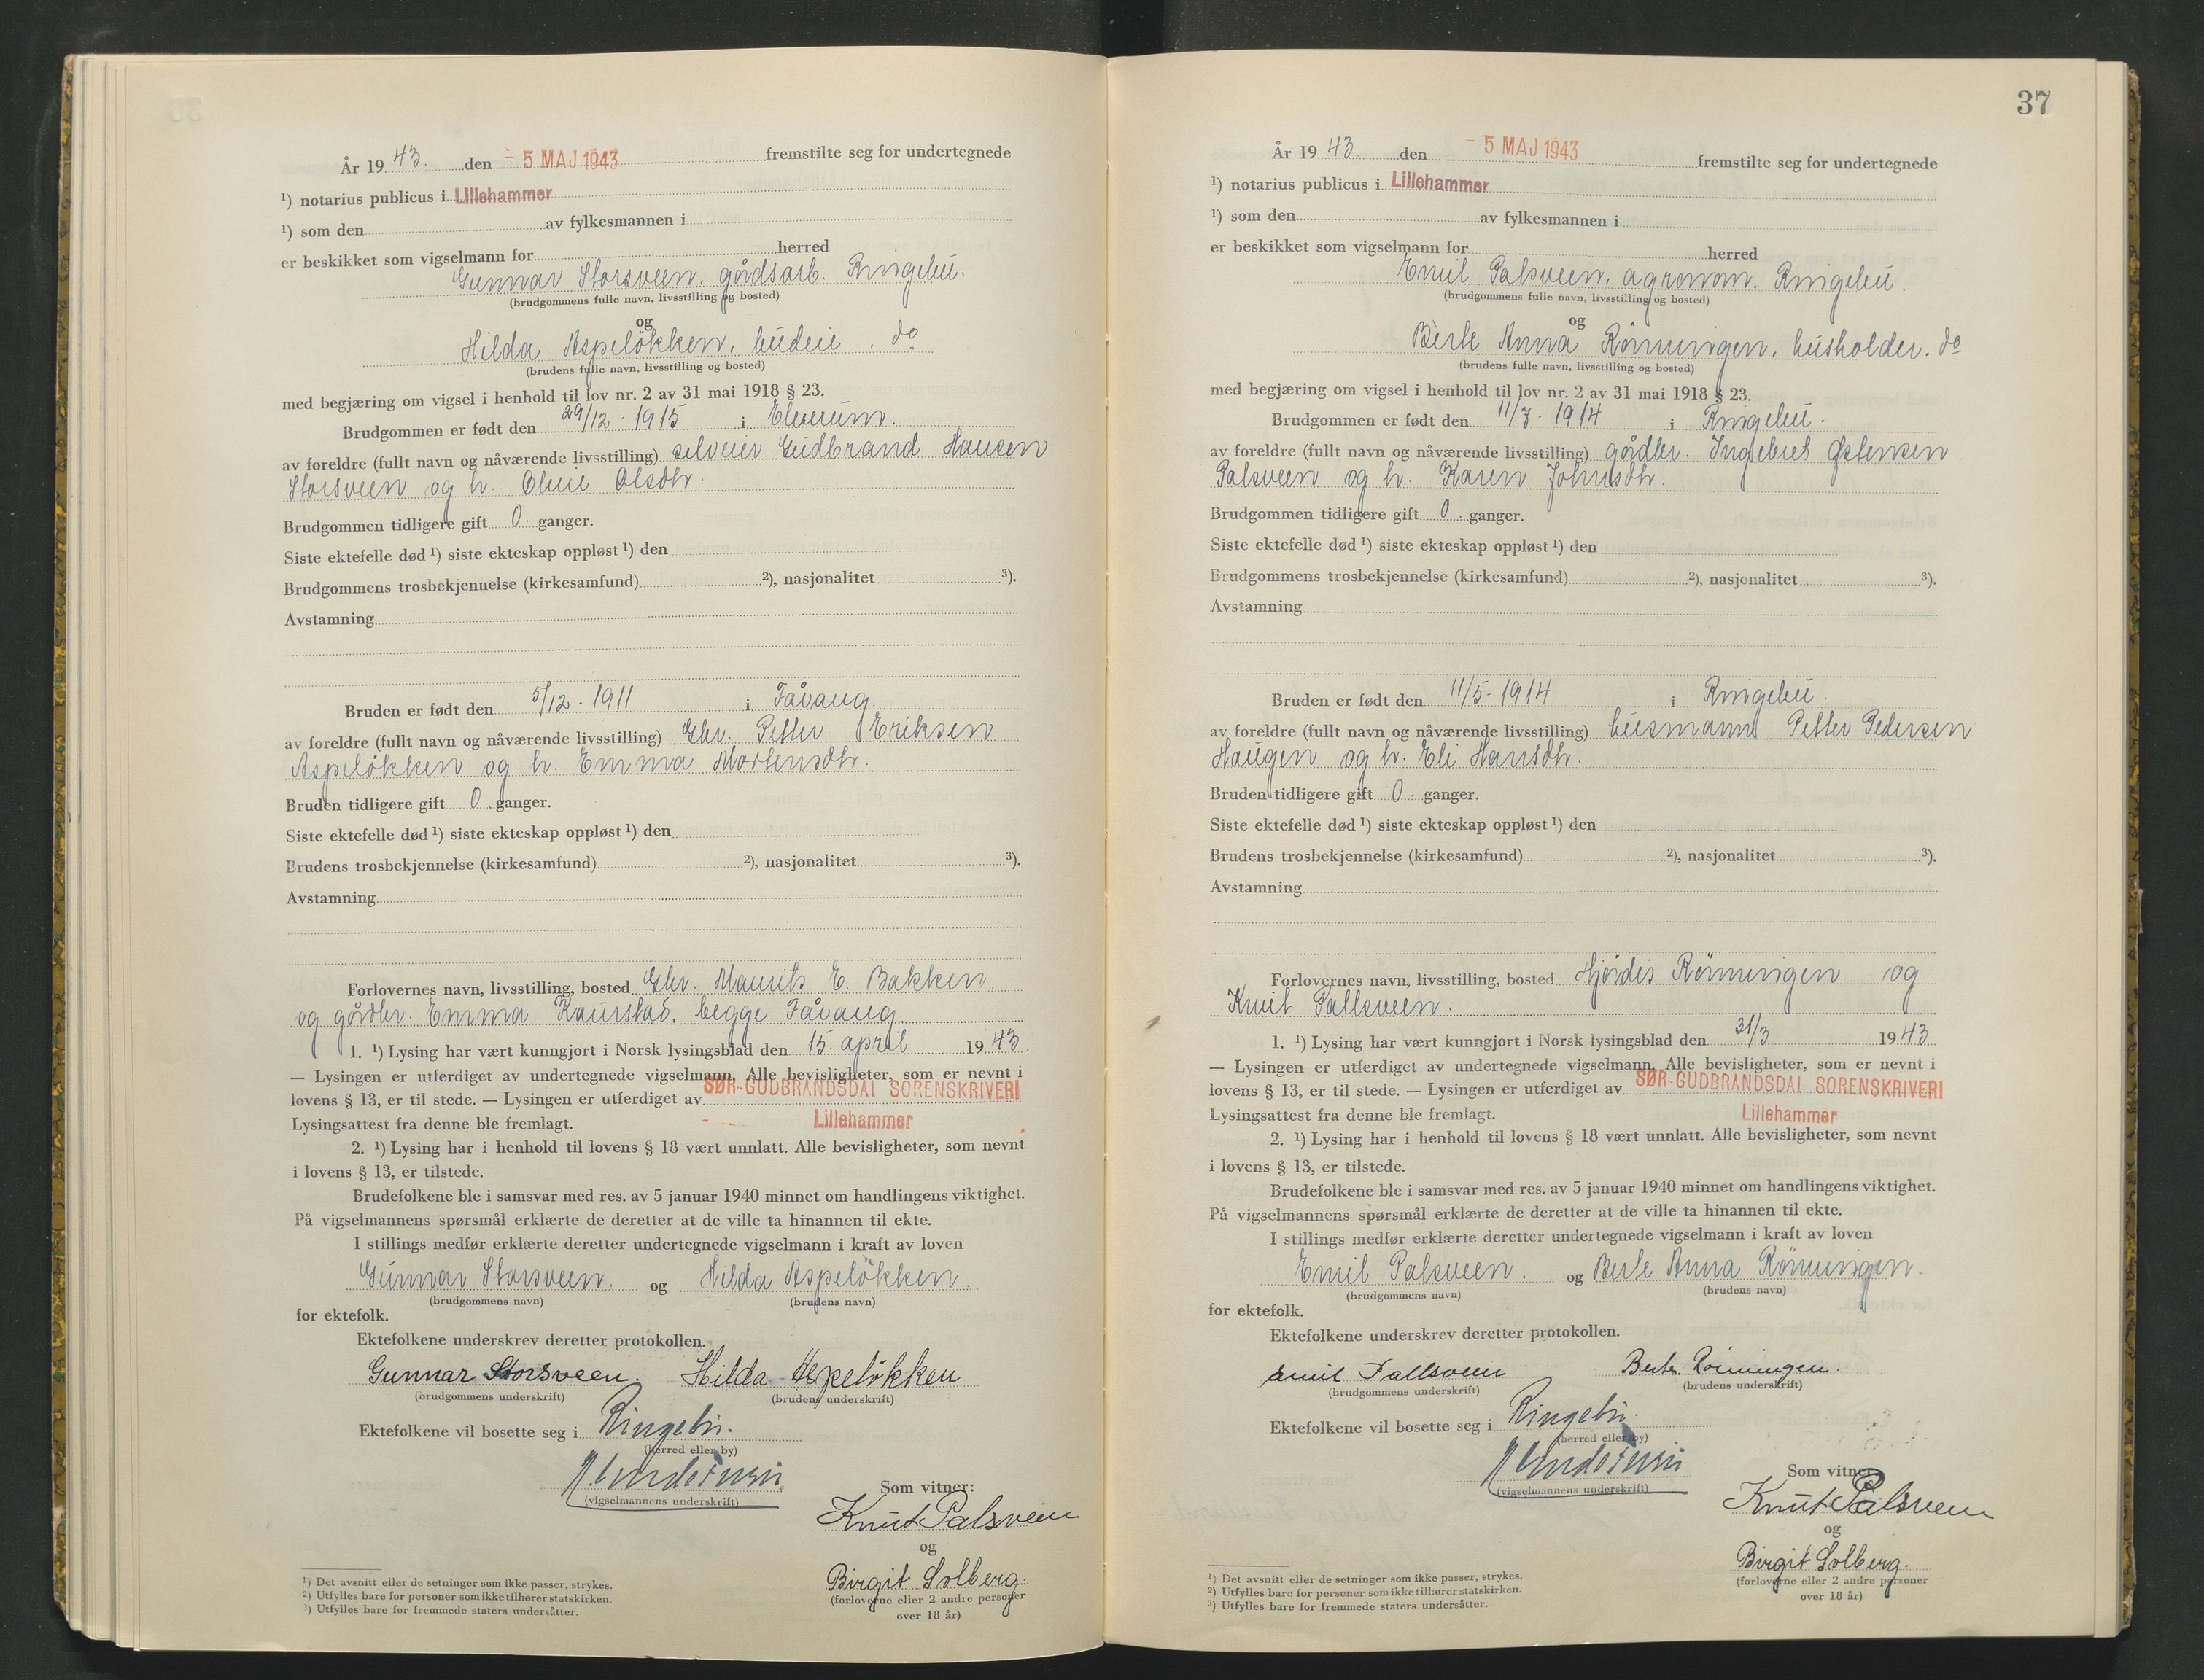 År 19 43. den - 5 MAJ 1943 fremstilte seg for undertegnede
¹) notarius publicus i Lillehammer
¹) som den av fylkesmannen i
er beskikket som vigselmann for herred
Gunnar Storsveen, gårdsarb. Ringebu.
(brudgommens fulle navn, livsstilling og bosted)
og
Hilda Aspelökken, budeie. do
(brudens fulle navn, livsstilling og bosted)
med begjæring om vigsel i henhold til lov nr. 2 av 31 mai 1918 § 23.
Brudgommen er født den 29/12 - 1915 i Elverum.
av foreldre (fullt navn og nåværende livsstilling) selveier Gudbrand Hansen
Storsveen og h. Oline Olsdtr.
Brudgommen tidligere gift 0 ganger.
Siste ektefelle død ¹) siste ekteskap oppløst ¹) den
Brudgommens trosbekjennelse (kirkesamfund) ²), nasjonalitet ³).
Avstamning
Bruden er født den 5/12 - 1911 i Fåvang
av foreldre (fullt navn og nåværende livsstilling) Gbr. Petter Eriksen
Aspelökken og h. Emma Mortensdtr.
Bruden tidligere gift 0 ganger.
Siste ektefelle død ¹) siste ekteskap oppløst ¹) den
Brudens trosbekjennelse (kirkesamfund) ²), nasjonalitet ³).
Avstamning
Forlovernes navn, livsstilling, bosted Gbr. Maurits E. Bakken,
og gårdbr. Emma Kaurstad, begge Fåvang.
1. ¹) Lysing har vært kunngjort i Norsk lysingsblad den 15. april 19 43.
— Lysingen er utferdiget av undertegnede vigselmann. Alle bevisligheter, som er nevnt i
lovens § 13, er til stede. — Lysingen er utferdiget av SØR-GUDBRANDSDAL SORENSKRIVERI
Lysingsattest fra denne ble fremlagt. Lillehammer
2. ¹) Lysing har i henhold til lovens § 18 vært unnlatt. Alle bevisligheter, som nevnt
i lovens § 13, er tilstede.
Brudefolkene ble i samsvar med res. av 5 januar 1940 minnet om handlingens viktighet.
På vigselmannens spørsmål erklærte de deretter at de ville ta hinannen til ekte.
I stillings medfør erklærte deretter undertegnede vigselmann i kraft av loven
Gunnar Storsveen. og Hilda Aspelökken.
(brudgommens navn) (brudens navn)
for ektefolk.
Ektefolkene underskrev deretter protokollen.
Gunnar Storsveen. Hilda Aspelökken
(brudgommens underskrift) (brudens underskrift)
Ektefolkene vil bosette seg i Ringebu.
(herred eller by)
(vigselmannens underskrift)
Som vitner:
Knut Palsveen
og
Birgit Solberg.
(forloverne eller 2 andre personer
over 18 år)
¹) Det avsnitt eller de setninger som ikke passer, strykes.
²) Utfylles bare for personer som ikke tilhører statskirken.
³) Utfylles bare for fremmede staters undersåtter.
37
År 19 43 den - 5 MAJ 1943 fremstilte seg for undertegnede
¹) notarius publicus i Lillehammer
¹) som den av fylkesmannen i
er beskikket som vigselmann for herred
Emil Palsveen, agronom. Ringebu.
(brudgommens fulle navn, livsstilling og bosted)
og
Berte Anna Rönningen, husholder. do
(brudens fulle navn, livsstilling og bosted)
med begjæring om vigsel i henhold til lov nr. 2 av 31 mai 1918 § 23.
Brudgommen er født den 11/7 - 1914 i Ringebu.
av foreldre (fullt navn og nåværende livsstilling) gårdbr. Ingebret Østensen
Palsveen og h. Karen Johnsdtr.
Brudgommen tidligere gift 0. ganger.
Siste ektefelle død ¹) siste ekteskap oppløst ¹) den
Brudgommens trosbekjennelse (kirkesamfund) ²), nasjonalitet ³).
Avstamning
Bruden er født den 11/5 - 1914 i Ringebu.
av foreldre (fullt navn og nåværende livsstilling) husmann Petter Pedersen
Haugen og h. Eli Hansdtr.
Bruden tidligere gift 0 ganger.
Siste ektefelle død ¹) siste ekteskap oppløst ¹) den
Brudens trosbekjennelse (kirkesamfund) ²), nasjonalitet ³).
Avstamning
Forlovernes navn, livsstilling, bosted Hjördis Rönningen og
Knut Pallsveen.
1. ¹) Lysing har vært kunngjort i Norsk lysingsblad den 31/3 19 43
— Lysingen er utferdiget av undertegnede vigselmann. Alle bevisligheter, som er nevnt i
lovens § 13, er til stede. — Lysingen er utferdiget av SØR-GUDBRANDSDAL SORENSKRIVERI
Lysingsattest fra denne ble fremlagt. Lillehammer
2. ¹) Lysing har i henhold til lovens § 18 vært unnlatt. Alle bevisligheter, som nevnt
i lovens § 13, er tilstede.
Brudefolkene ble i samsvar med res. av 5 januar 1940 minnet om handlingens viktighet.
På vigselmannens spørsmål erklærte de deretter at de ville ta hinannen til ekte.
I stillings medfør erklærte deretter undertegnede vigselmann i kraft av loven
Emil Palsveen. og Berte Anna Rönningen.
(brudgommens navn) (brudens navn)
for ektefolk.
Ektefolkene underskrev deretter protokollen.
Emil Pallsveen Berte Rönningen.
(brudgommens underskrift) (brudens underskrift)
Ektefolkene vil bosette seg i Ringebu.
(herred eller by)
(vigselmannens underskrift)
Som vitner:
Knut Palsveen
og
Birgit Solberg.
(forloverne eller 2 andre personer
over 18 år)
¹) Det avsnitt eller de setninger som ikke passer, strykes.
²) Utfylles bare for personer som ikke tilhører statskirken.
³) Utfylles bare for fremmede staters undersåtter.